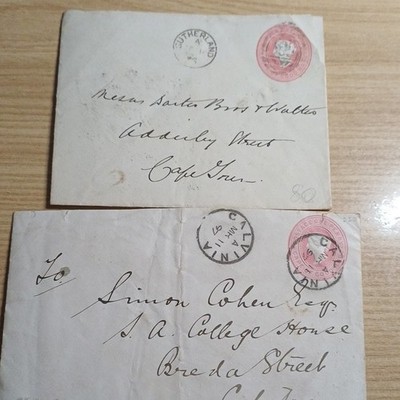 SUTHERLAND
Messrs Darter Bros & Walton
Adderley Street
Cape Town
80
CALVINIA
A
MR 11
97
CALVINIA
To
Simon Cohen Esq
S. A. College House
Breda Street